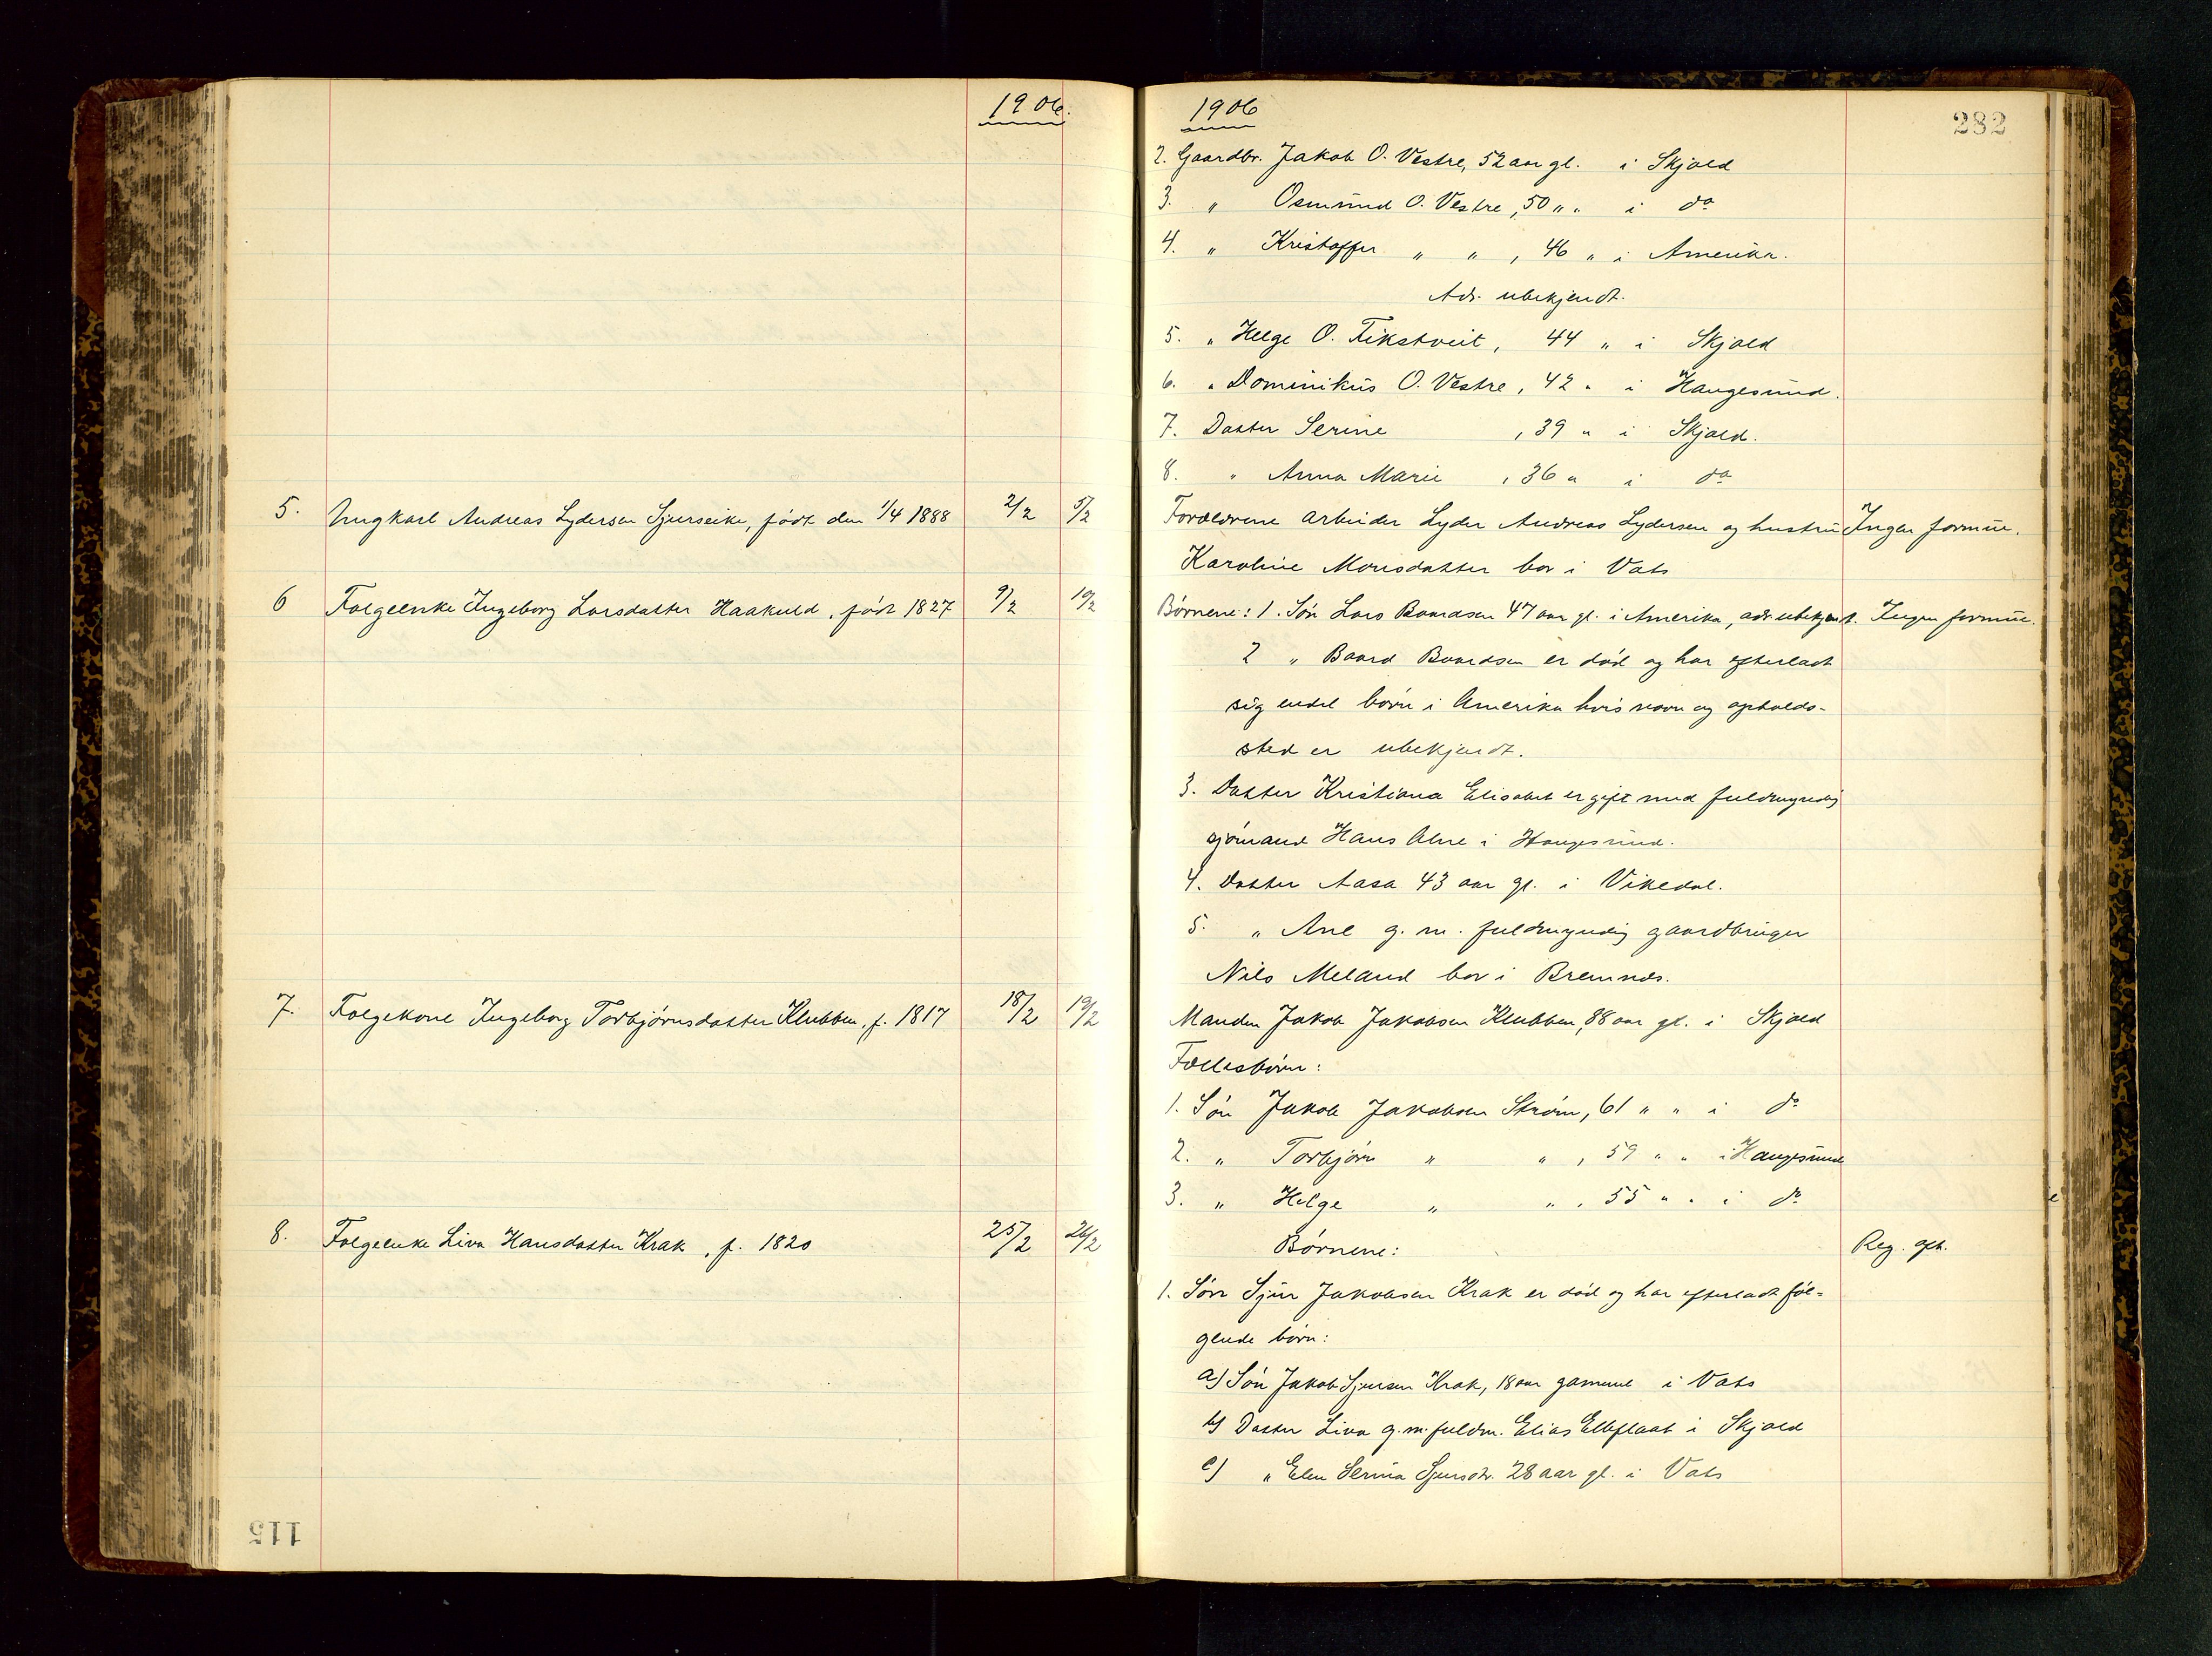 1906.
5. Ungkarl Andreas Lydersen Sjurseike, født den 1/4 1888 2/2 5/2
6 Folgeenke Ingeborg Larsdatter Haakuld, født 1827 9/2 10/2
7. Folgekone Ingeborg Torbjørnsdatter Klubben, f. 1817 18/2 19/2
8. Folgeenke Liva Hansdatter Krak, f. 1820 25/2 26/2
115
1906
282
2. Gaardbr. Jakob O. Vestre, 52 aar gl. i Skjold
3. " Osmund O. Vestre, 50 " " i do
4. " Kristoffer " " , 46 " i Amerika.
Adr. ubekjendt.
5. " Helge O. Fikstveit, 44 " i Skjold
6. " Dominikus O. Vestre, 42 " i Haugesund.
7. Datter Serine , 39 " i Skjold.
8. " Anna Marie , 36 " i do
Forældrene arbeider Lyder Andreas Lydersen og hustru Ingen formue.
Karoline Monsdatter bor i Vats
Børnene: 1. Søn Lars Baardsen 47 aar gl. i Amerika, adr. ubekjendt. Ingen formue.
2 " Baard Baardsen er død og har efterladt
sig endel børn i Amerika hvis navn og opholds-
sted er ubekjendt.
3. Datter Kristiana Elisabet er gift med fuldmyndig
sjømand Hans Alne i Haugesund.
4. Datter Aasa 43 aar gl. i Vikedal.
5. " Ane g. m. fuldmyndig gaardbruger
Nils Meland bor i Bremnes.
Manden Jakob Jakobsen Klubben, 88 aar gl. i Skjold
Fællesbørn:
1. Søn Jakob Jakobsen Strøm, 61 " " i do
2. " Torbjørn " " , 59 " " i Haugesund
3. " Helge " " , 55 " " i do
Børnene: Reg. afh.
1. Søn Sjur Jakobsen Krak er død og har efterladt føl-
gende børn:
a) Søn Jakob Sjursen Krak, 18 aar gammel i Vats
b) Datter Liva g. m. fuldm. Elias Elleflaat i Skjold
c) " Elen Serina Sjursdr. 28 aar gl. i Vats